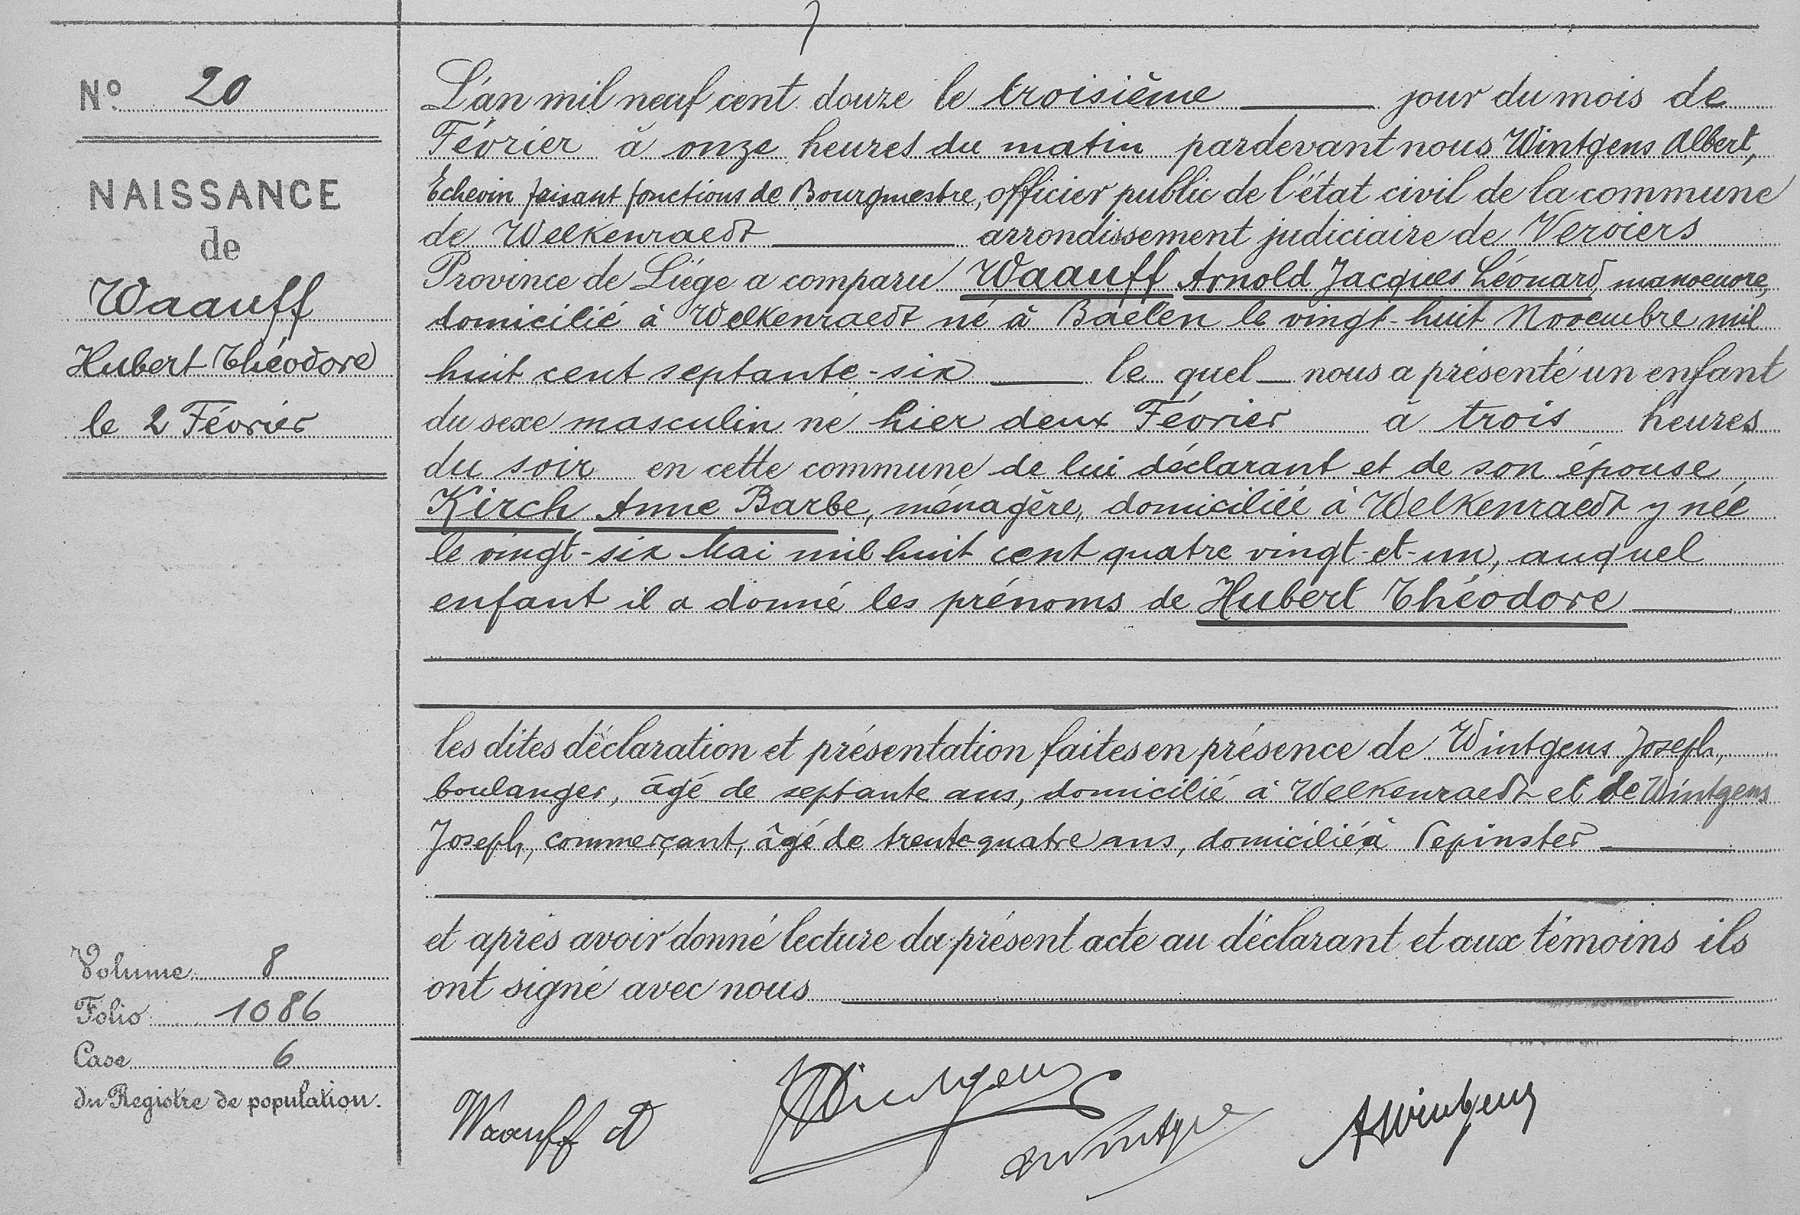 Nº 20
NAISSANCE
de
Waauff
Hubert Théodore
le 2 Février
L'an mil neuf cent douze le troisième jour du mois de
Février à onze heures du matin pardevant nous Wintgens Albert,
Echevin faisant fonctions de Bourgmestre, officier public de l'état civil de la commune
de Welkenraedt arrondissement judiciaire de Verviers
Province de Liége a comparu Waauff Arnold Jacques Léonard, manoeuvre,
domicilié à Welkenraedt né à Baelen le vingt-huit Novembre mil
huit cent septante-six le quel nous a présenté un enfant
du sexe masculin né hier deux Février à trois heures
du soir en cette commune de lui déclarant et de son épouse
Kirch Anne Barbe, ménagère, domiciliée à Welkenraedt y née
le vingt-six Mai mil huit cent quatre vingt-et-un, auquel
enfant il a donné les prénoms de Hubert Théodore
les dites déclaration et présentation faites en présence de Wintgens Joseph,
boulanger, âgé de septante ans, domicilié à Welkenraedt et de Wintgens
Joseph, commerçant, âgé de trente-quatre ans, domicilié à Pepinster
et après avoir donné lecture du présent acte au déclarant et aux témoins ils
ont signé avec nous
Volume 8
Folio 1086
Case 6
du Registre de population.
Waauff A
JWintgens
Wintgens
AWintgens